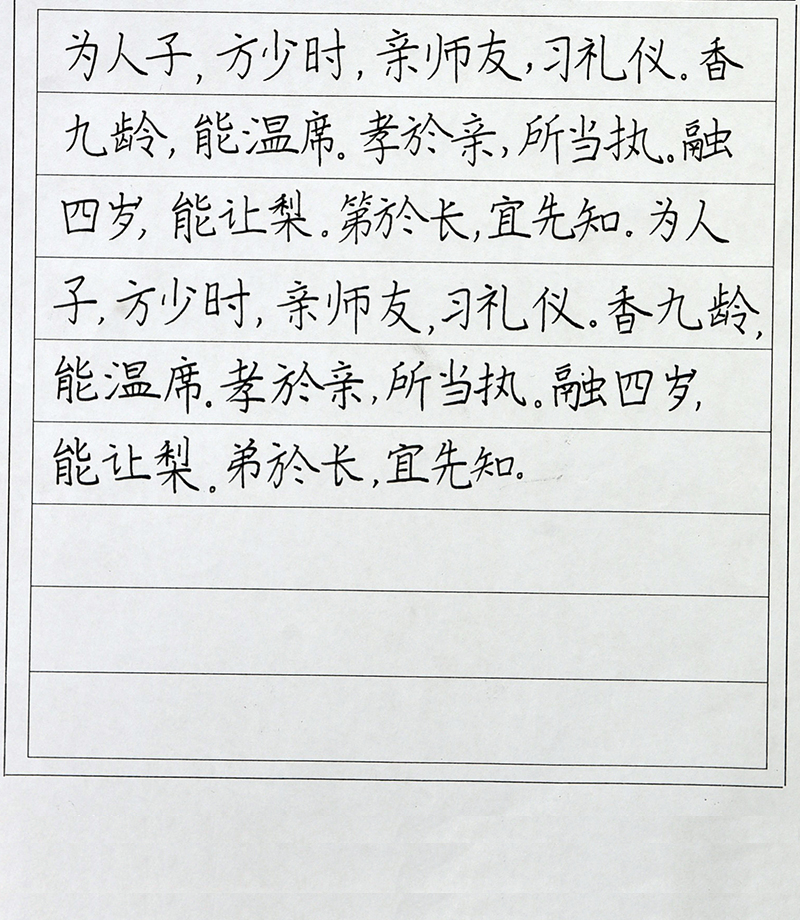 为人子,方少时,亲师友,习礼仪。香
九龄,能温席。孝於亲,所当执。融
四岁,能让梨。第於长,宜先知。为人
子,方少时,亲师友,习礼仪。香九龄,
能温席。孝於亲,所当执。融四岁,
能让梨。弟於长,宜先知。